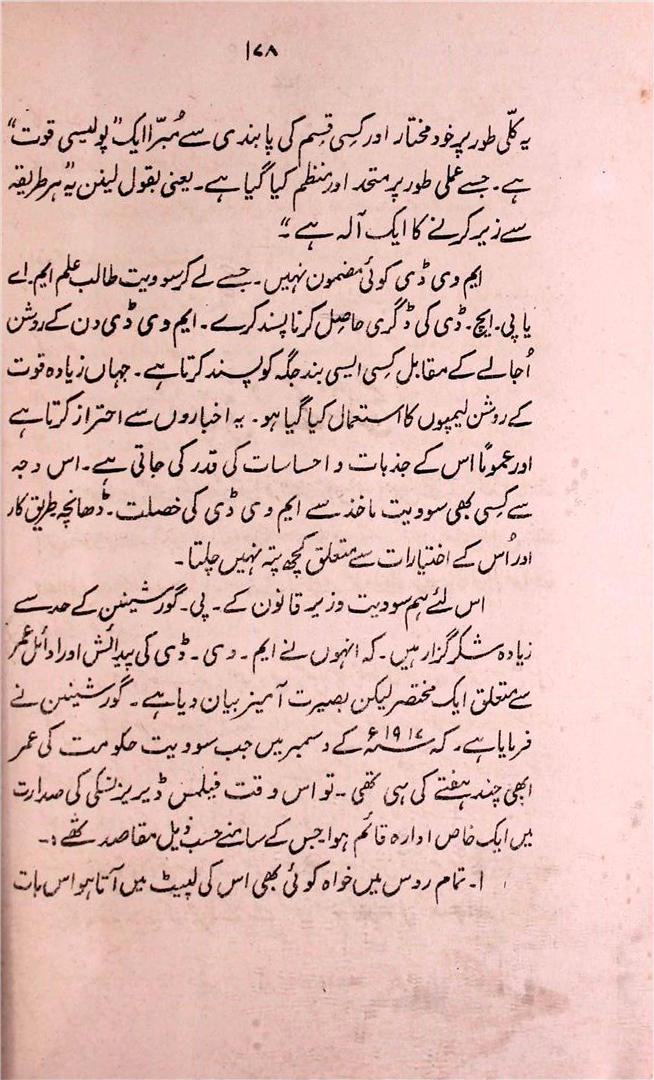 ۱۷۸
یہ کلّی طور پر خود مختار اور کسی قسم کی پابندی سے مُبرّا ایک ”پولیسی قوت“
ہے۔ جسے عملی طور پر متحد اور منظم کیا گیا ہے۔ یعنی بقول لینن یہ ”ہر طریقہ
سے زیر کرنے کا ایک آلہ ہے۔“
ایم وی ڈی کوئی مضمون نہیں۔ جسے لے کر سوویت طالب علم ایم۔ اے
یا پی۔ ایچ۔ ڈی کی ڈگری حاصل کرنا پسند کرے۔ ایم وی ڈی دن کے روشن
اُجالے کے مقابل کسی ایسی بند جگہ کو پسند کرتا ہے۔ جہاں زیادہ قوت
کے روشن لیمپوں کا استعمال کیا گیا ہو۔ یہ اخباروں سے احتراز کرتا ہے
اور عموماً اس کے جذبات و احساسات کی قدر کی جاتی ہے۔ اس وجہ
سے کسی بھی سوویت ماخذ سے ایم وی ڈی کی خصلت۔ ڈھانچہ طریق کار
اور اُس کے اختیارات سے متعلق کچھ پتہ نہیں چلتا۔
اس لئے ہم سوویت وزیر قانون کے۔ پی۔ گورشینن کے حد سے
زیادہ شکر گزار ہیں۔ کہ انہوں نے ایم۔ وی۔ ڈی کی پیدائش اور اوائل عمر
سے متعلق ایک مختصر لیکن بصیرت آمیز بیان دیا ہے۔ گورشینن نے
فرمایا ہے۔ کہ ۱۹۱۷ء کے دسمبر میں جب سوویت حکومت کی عمر
ابھی چند ہفتے کی ہی تھی۔ تو اس وقت فیلمس ڈیریزنسکی کی صدارت
میں ایک خاص ادارہ قائم ہوا جس کے سامنے حسب ذیل مقاصد تھے :۔
۱۔ تمام روس میں خواہ کوئی بھی اس کی لپیٹ میں آتا ہو اس بات